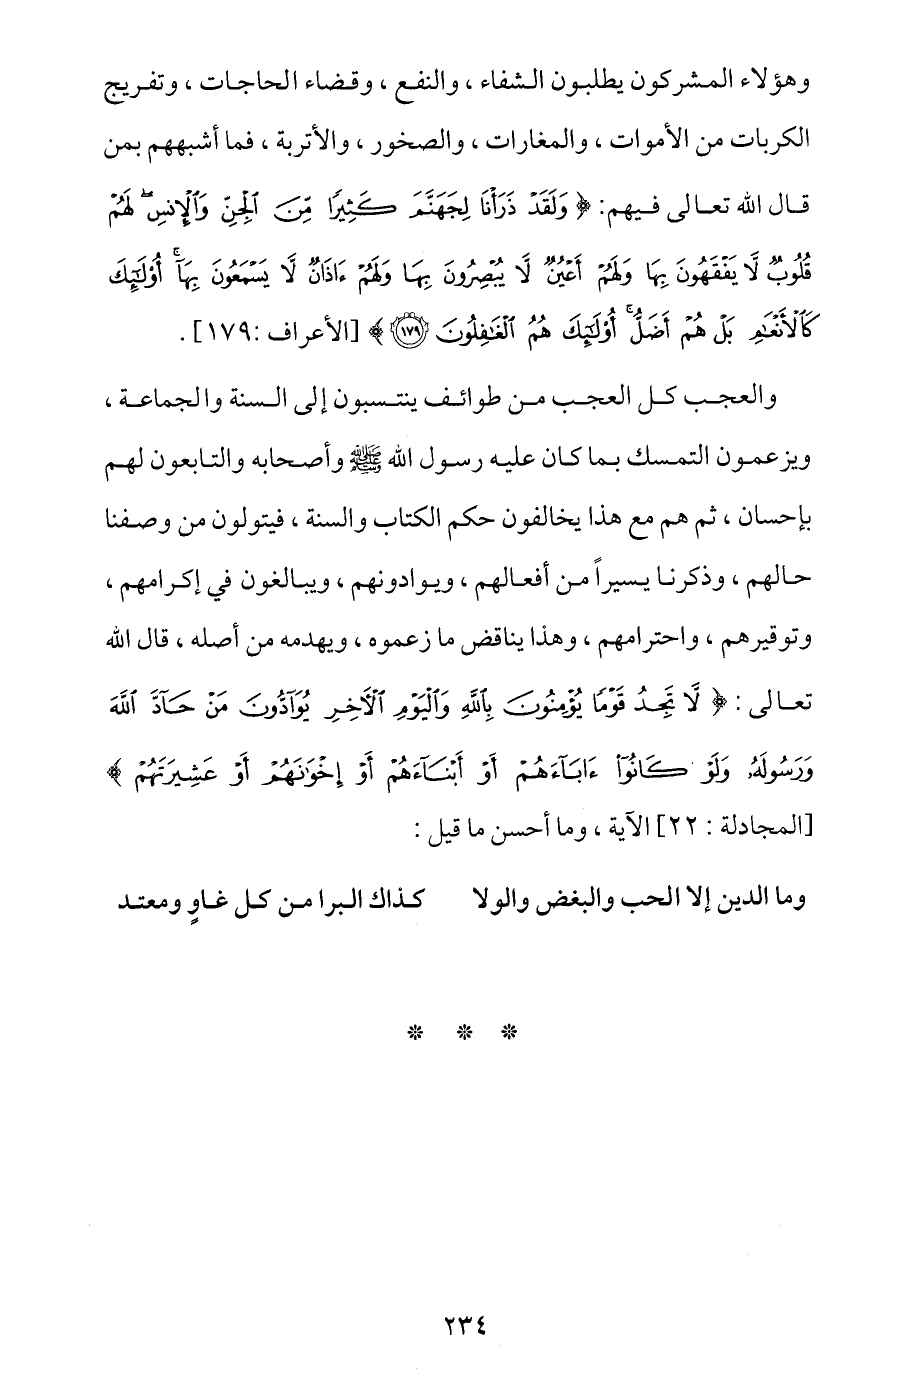 وهؤلاء المشركون يطلبون الشفاء ، والنفع ، وقضاء الحاجات ، وتفريج
الكربات من الأموات ، والمغارات ، والصخور ، والأتربة ، فما أشبههم بمن
قال الله تعالى فيهم: ﴿ وَلَقَدْ ذَرَأْنَا لِجَهَنَّمَ كَثِيرًا مِّنَ ٱلْجِنِّ وَٱلْإِنسِ ۖ لَهُمْ
قُلُوبٌ لَّا يَفْقَهُونَ بِهَا وَلَهُمْ أَعْيُنٌ لَّا يُبْصِرُونَ بِهَا وَلَهُمْ ءَاذَانٌ لَّا يَسْمَعُونَ بِهَآ ۚ أُوْلَٰٓئِكَ
كَٱلْأَنْعَٰمِ بَلْ هُمْ أَضَلُّ ۚ أُوْلَٰٓئِكَ هُمُ ٱلْغَٰفِلُونَ ١٧٩ ﴾ [الأعراف :١٧٩] .
والعجب كل العجب من طوائف ينتسبون إلى السنة والجماعة ،
ويزعمون التمسك بما كان عليه رسول الله ﷺ وأصحابه والتابعون لهم
بإحسان ، ثم هم مع هذا يخالفون حكم الكتاب والسنة ، فيتولون من وصفنا
حالهم ، وذكرنا يسيراً من أفعالهم ، ويوادونهم ، ويبالغون في إكرامهم ،
وتوقيرهم ، واحترامهم ، وهذا يناقض ما زعموه ، ويهدمه من أصله ، قال الله
تعالى : ﴿ لَّا تَجِدُ قَوْمًا يُؤْمِنُونَ بِٱللَّهِ وَٱلْيَوْمِ ٱلْءَاخِرِ يُوَآدُّونَ مَنْ حَآدَّ ٱللَّهَ
وَرَسُولَهُۥ وَلَوْ كَانُوٓا۟ ءَابَآءَهُمْ أَوْ أَبْنَآءَهُمْ أَوْ إِخْوَٰنَهُمْ أَوْ عَشِيرَتَهُمْ ﴾
[المجادلة : ٢٢] الآية ، وما أحسن ما قيل :
وما الدين إلا الحب والبغض والولا كذاك البرا من كل غاوٍ ومعتد
* * *
٢٣٤